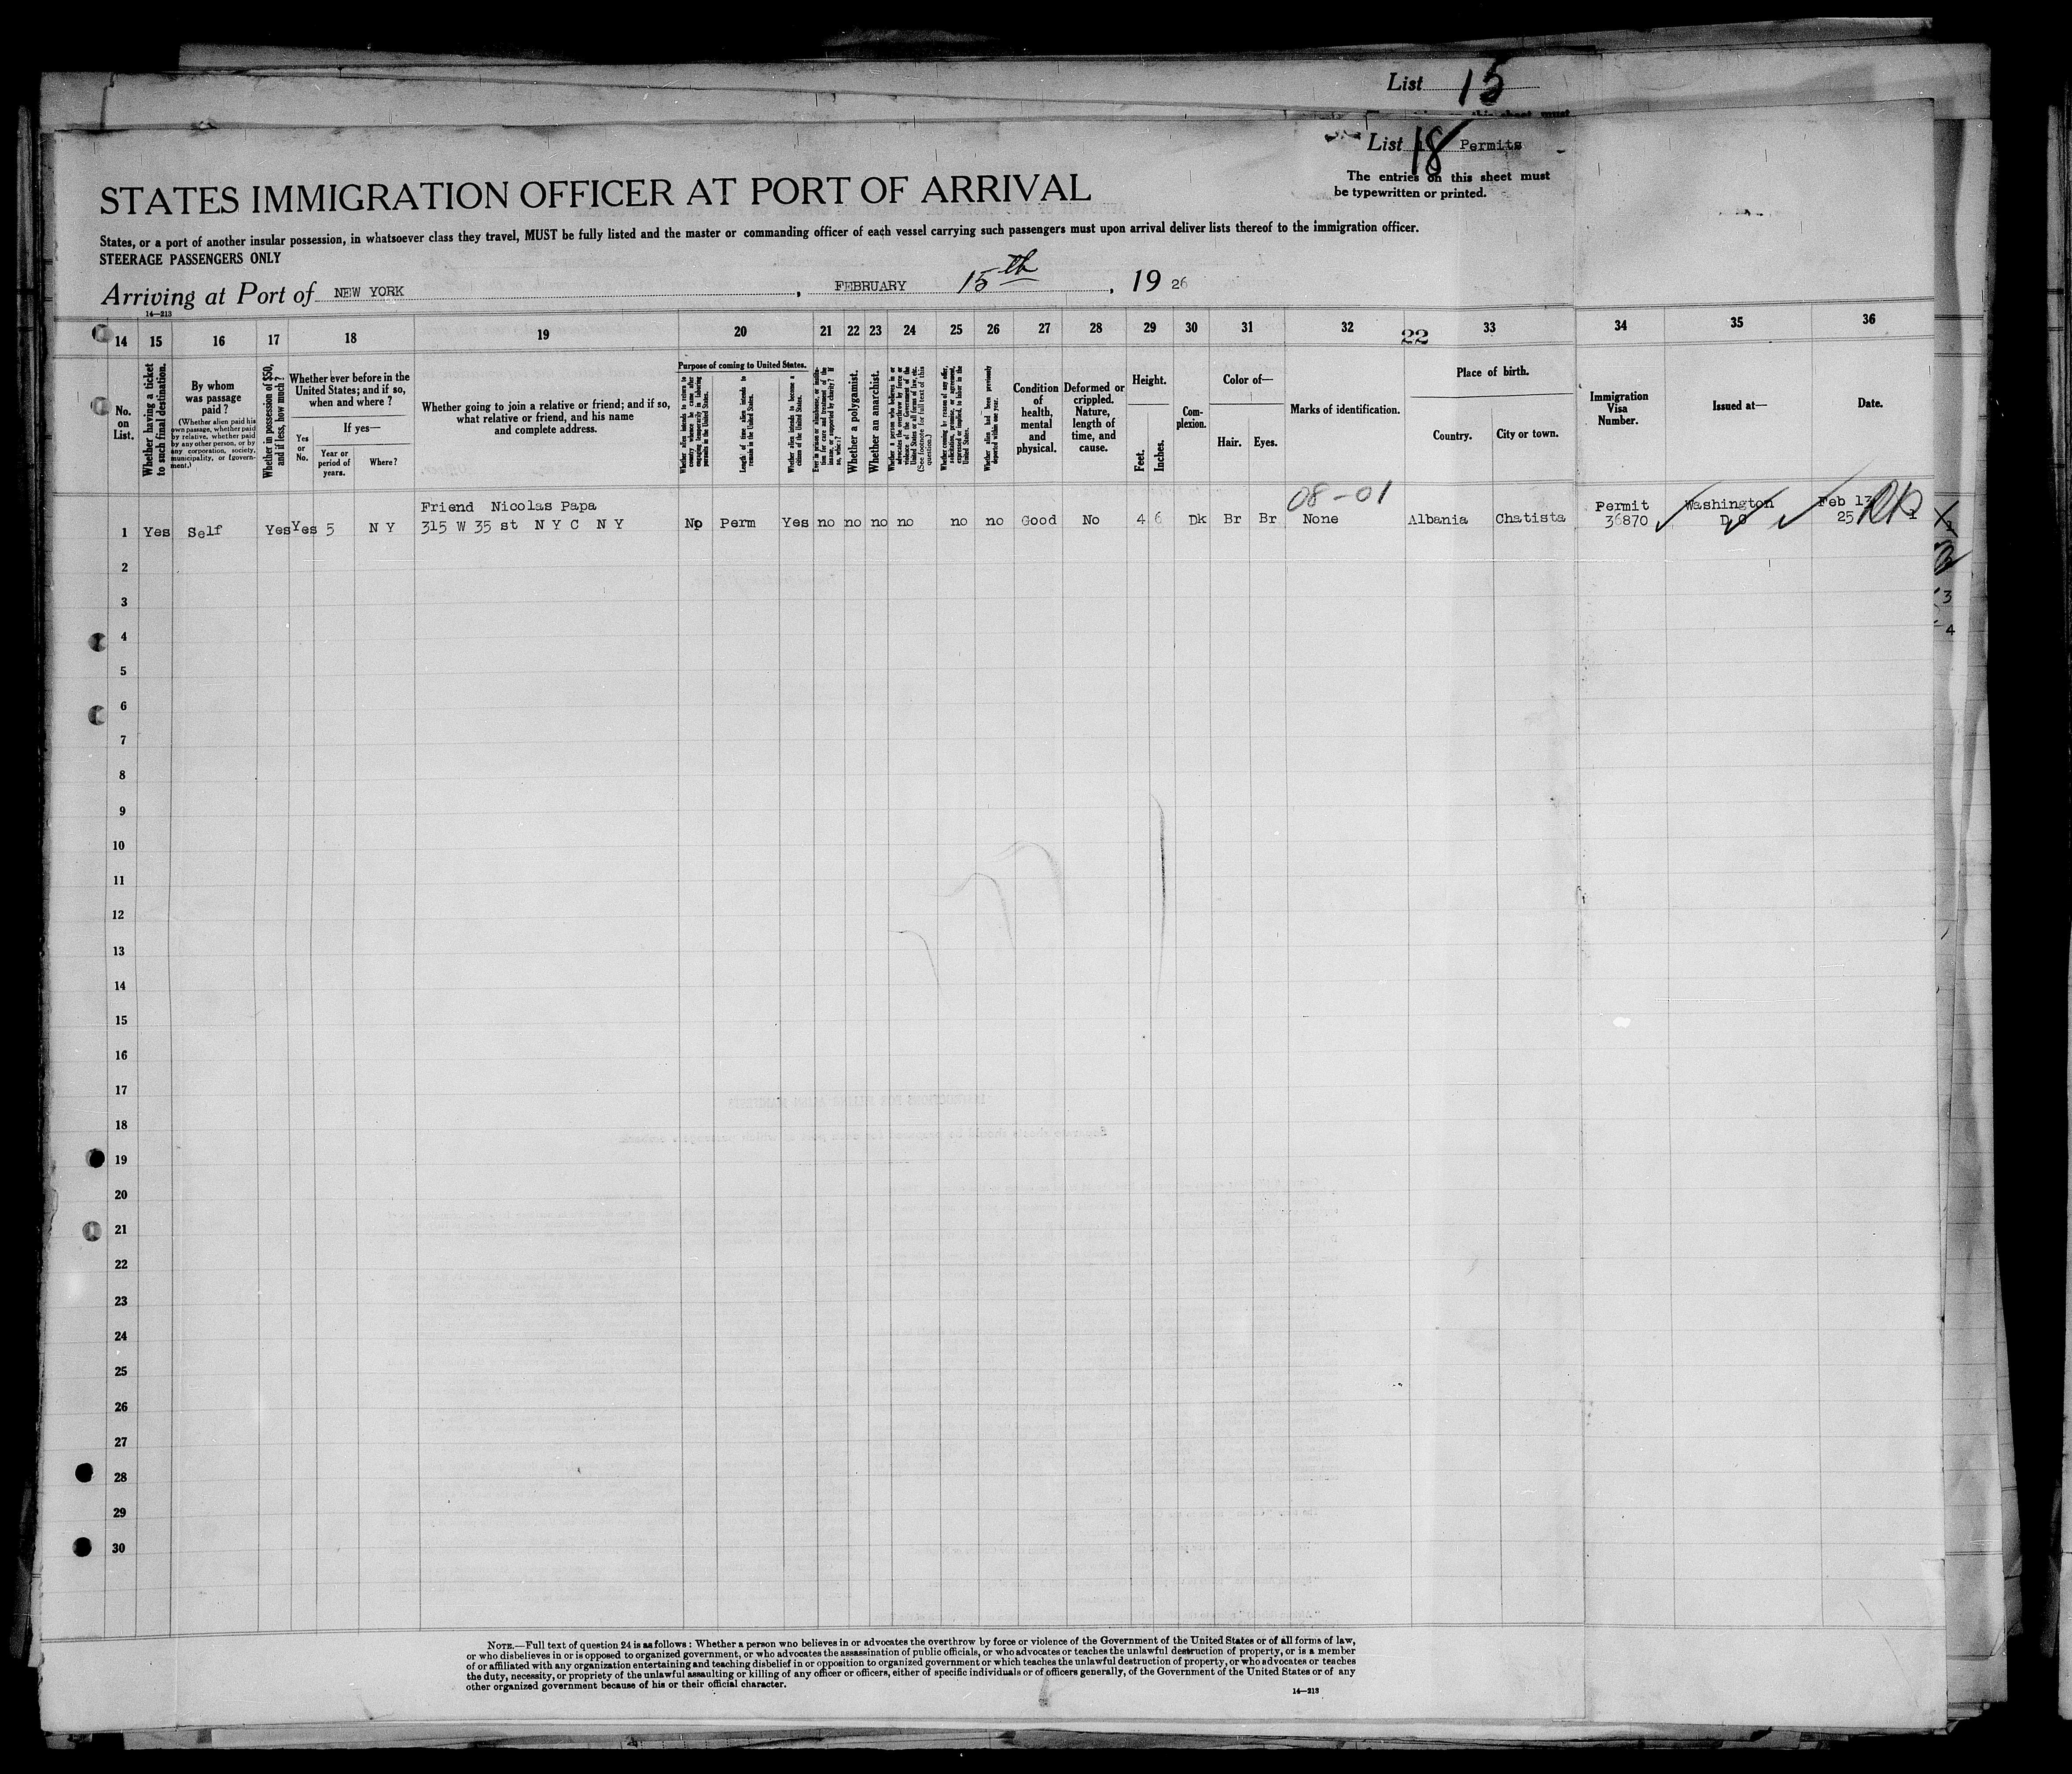 List 15
List 18 Permits
The entries on this sheet must
be typewritten or printed.
STATES IMMIGRATION OFFICER AT PORT OF ARRIVAL
States, or a port of another insular possession, in whatsoever class they travel, MUST be fully listed and the master or commanding officer of each vessel carrying such passengers must upon arrival deliver lists thereof to the immigration officer.
STEERAGE PASSENGERS ONLY
Arriving at Port of NEW YORK, FEBRUARY 15th, 19 26
14—213
14 15 16 17 18 19 20 21 22 23 24 25 26 27 28 29 30 31 32 22 33 34 35 36
No. on List.
Whether having a ticket to such final destination.
By whom was passage paid?
(Whether alien paid his own passage, whether paid by relative, whether paid by any other person, or by any corporation, society, municipality, or government.)
Whether in possession of $50, and if less, how much?
Whether ever before in the United States; and if so, when and where?
Yes or No.
If yes—
Year or period of years.
Where?
Whether going to join a relative or friend; and if so, what relative or friend, and his name and complete address.
Purpose of coming to United States.
Whether alien intends to return to country whence he came after engaging temporarily in laboring pursuits in the United States.
Length of time alien intends to remain in the United States.
Whether alien intends to become a citizen of the United States.
Ever in prison or almshouse, or institution for care and treatment of the insane, or supported by charity? If so, which?
Whether a polygamist.
Whether an anarchist.
Whether a person who believes in or advocates the overthrow by force or violence of the Government of the United States or all forms of law, etc. (See footnote for full text of this question.)
Whether coming by reason of any offer, solicitation, promise, or agreement, expressed or implied, to labor in the United States.
Whether alien had been previously deported within one year.
Condition of health, mental and physical.
Deformed or crippled. Nature, length of time, and cause.
Height.
Feet. Inches.
Complexion.
Color of—
Hair. Eyes.
Marks of identification.
Place of birth.
Country. City or town.
Immigration Visa Number.
Issued at—
Date.
08-01
Friend Nicolas Papa Permit Washington Feb 13
1 Yes Self Yes Yes 5 N Y 315 W 35 st N Y C N Y No Perm Yes no no no no no no Good No 4 6 Dk Br Br None Albania Chatista 36870 D C 25
2
3
4
5
6
7
8
9
10
11
12
13
14
15
16
17
18
19
20
21
22
23
24
25
26
27
28
29
30
3
4
NOTE.—Full text of question 24 is as follows: Whether a person who believes in or advocates the overthrow by force or violence of the Government of the United States or of all forms of law,
or who disbelieves in or is opposed to organized government, or who advocates the assassination of public officials, or who advocates or teaches the unlawful destruction of property, or is a member
of or affiliated with any organization entertaining and teaching disbelief in or opposition to organized government or which teaches the unlawful destruction of property, or who advocates or teaches
the duty, necessity, or propriety of the unlawful assaulting or killing of any officer or officers, either of specific individuals or of officers generally, of the Government of the United States or of any
other organized government because of his or their official character.
14—213